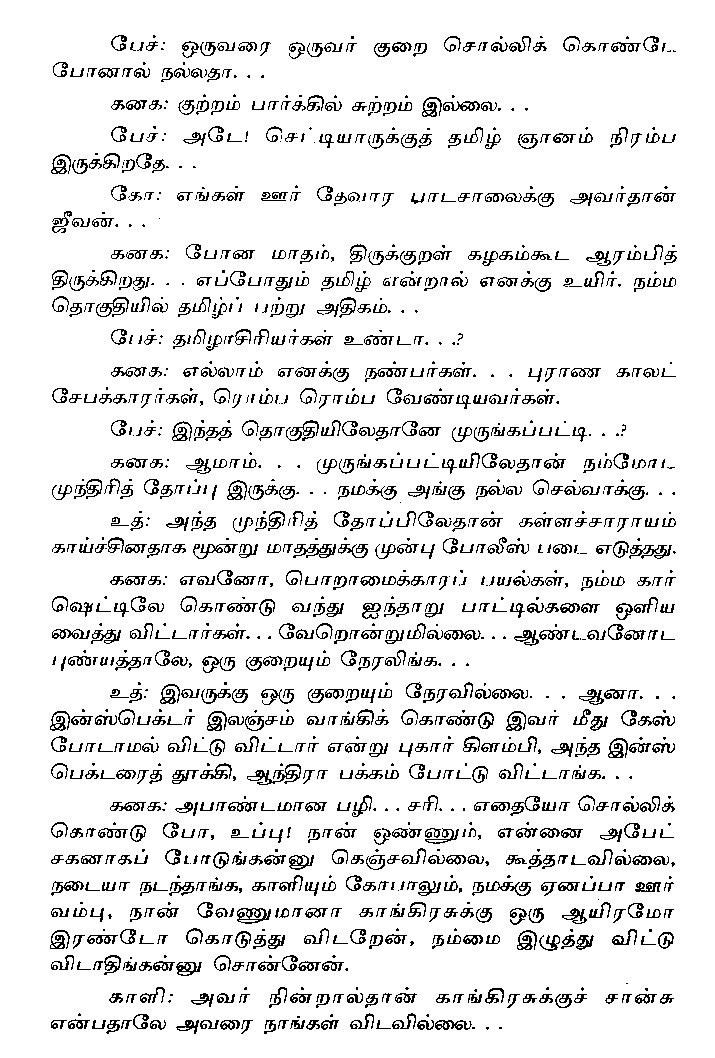 பேச்: ஒருவரை ஒருவர் குறை சொல்லிக் கொண்டே
போனால் நல்லதா. . .
கனக: குற்றம் பார்க்கில் சுற்றம் இல்லை. . .
பேச்: அடே! செட்டியாருக்குத் தமிழ் ஞானம் நிரம்ப
இருக்கிறதே. . .
கோ: எங்கள் ஊர் தேவார பாடசாலைக்கு அவர்தான்
ஜீவன். . .
கனக: போன மாதம், திருக்குறள் கழகம்கூட ஆரம்பித்
திருக்கிறது. . . எப்போதும் தமிழ் என்றால் எனக்கு உயிர். நம்ம
தொகுதியில் தமிழ்ப் பற்று அதிகம். . .
பேச்: தமிழாசிரியர்கள் உண்டா. . .?
கனக: எல்லாம் எனக்கு நண்பர்கள். . . புராண காலட்
சேபக்காரர்கள், ரொம்ப ரொம்ப வேண்டியவர்கள்.
பேச்: இந்தத் தொகுதியிலேதானே முருங்கப்பட்டி. . .?
கனக: ஆமாம். . . முருங்கப்பட்டியிலேதான் நம்மோட
முந்திரித் தோப்பு இருக்கு. . . நமக்கு அங்கு நல்ல செல்வாக்கு. . .
உத்: அந்த முந்திரித் தோப்பிலேதான் கள்ளச்சாராயம்
காய்ச்சினதாக மூன்று மாதத்துக்கு முன்பு போலீஸ் படை எடுத்தது.
கனக: எவனோ, பொறாமைக்காரப் பயல்கள், நம்ம கார்
ஷெட்டிலே கொண்டு வந்து ஐந்தாறு பாட்டில்களை ஒளிய
வைத்து விட்டார்கள். . . வேறொன்றுமில்லை. . . ஆண்டவனோட
புண்யத்தாலே, ஒரு குறையும் நேரலிங்க. . .
உத்: இவருக்கு ஒரு குறையும் நேரவில்லை. . . ஆனா. . .
இன்ஸ்பெக்டர் இலஞ்சம் வாங்கிக் கொண்டு இவர் மீது கேஸ்
போடாமல் விட்டு விட்டார் என்று புகார் கிளம்பி, அந்த இன்ஸ்
பெக்டரைத் தூக்கி, ஆந்திரா பக்கம் போட்டு விட்டாங்க. . .
கனக: அபாண்டமான பழி. . . சரி. . . எதையோ சொல்லிக்
கொண்டு போ, உப்பு! நான் ஒண்ணும், என்னை அபேட்
சகனாகப் போடுங்கண்ணு கெஞ்சவில்லை, கூத்தாடவில்லை,
நடையா நடந்தாங்க, காளியும் கோபாலும், நமக்கு ஏனப்பா ஊர்
வம்பு, நான் வேணுமானா காங்கிரசுக்கு ஒரு ஆயிரமோ
இரண்டோ கொடுத்து விடறேன், நம்மை இழுத்து விட்டு
விடாதிங்கண்ணு சொன்னேன்.
காளி: அவர் நின்றால்தான் காங்கிரசுக்குச் சான்சு
என்பதாலே அவரை நாங்கள் விடவில்லை. . .